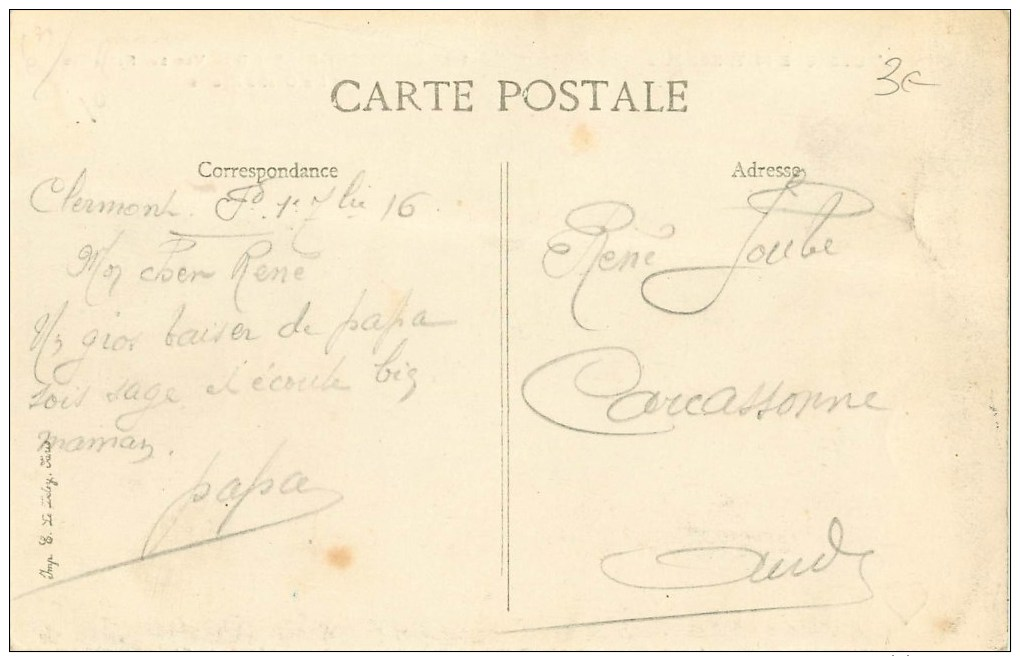 CARTE POSTALE
3€
Correspondance
Clermont Fd 1e 7bre 16
Mon cher René
Un gros baiser de papa
sois sage et écoute bien
maman.
papa
Imp. E. Le Deley, Paris
Adresse
René Joube
Carcassonne
Aude